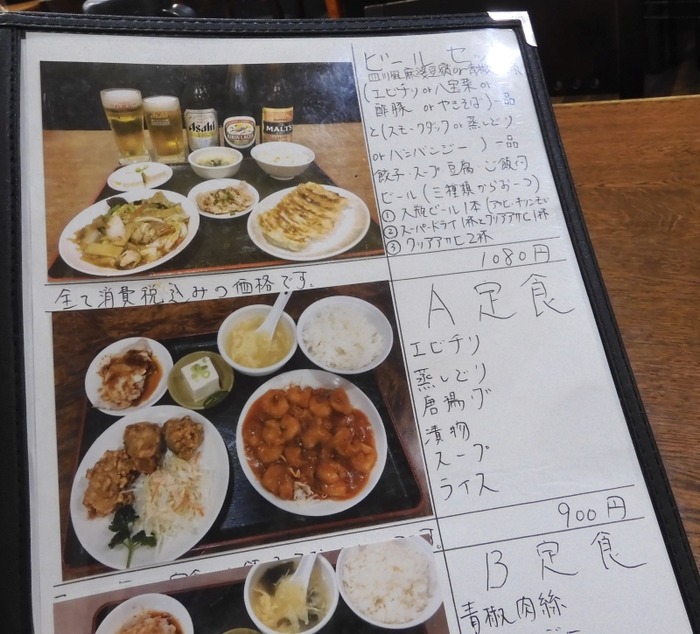 ビールセッ
四川風麻婆豆腐or青椒
(エビチリor八宝菜or
酢豚 orやきそば)一品
と(スモークダックor蒸しどり
orバンバンジー )一品
餃子・スープ・豆腐・ご飯付
ビール(三種類からお一つ)
① 大瓶ビール1本(アサヒ・キリン・モルツ
② スーパードライ1杯とクリアアサヒ1杯
③ クリアアサヒ2杯
1080円
Asahi
KIRIN
MALT'S
全て消費税込みの価格です。
A定食
エビチリ
蒸しどり
唐揚げ
漬物
スープ
ライス
900円
B定食
青椒肉絲